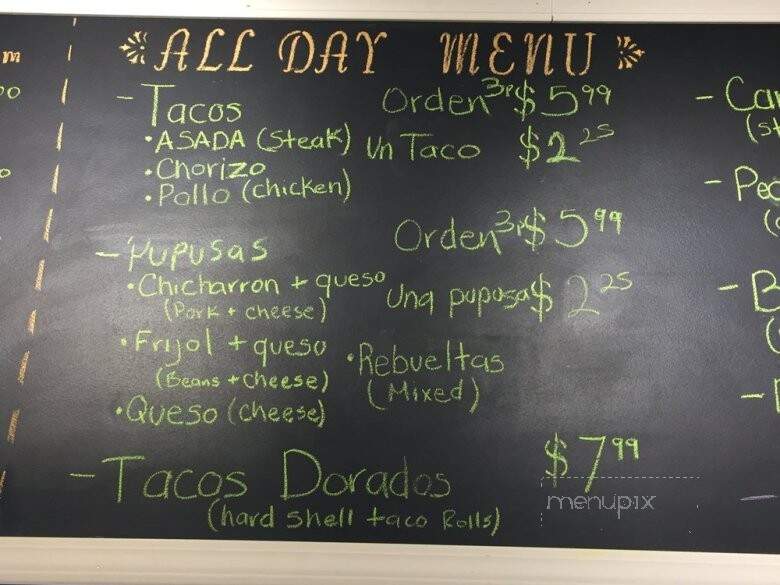 ALL DAY MENU
- Tacos Orden 3p $5.99
• ASADA (Steak) Un Taco $2.25
• Chorizo
• Pollo (chicken)
- Pupusas Orden 3p $5.99
• Chicharron + queso Una pupusa $2.25
(Pork + cheese)
• Frijol + queso • Rebueltas
(Beans + cheese) (Mixed)
• Queso (cheese)
- Tacos Dorados $7.99
(hard shell taco Rolls)
menupix